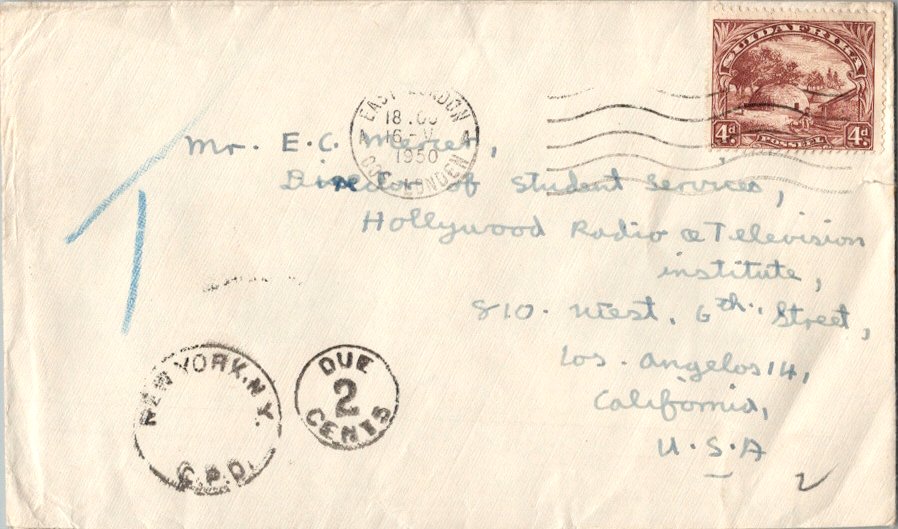 SUIDAFRIKA
4d POSSEËL 4d
EAST LONDON
18.00
16-V
1950
OOS-LONDEN
Mr. E.C. Mercer,
Director of Student Services,
Hollywood Radio & Television
institute,
810. West. 6th. Street,
Los. Angelos 14,
California,
U.S.A
T
NEW YORK, N.Y.
G.P.O.
DUE
2
CENTS
2